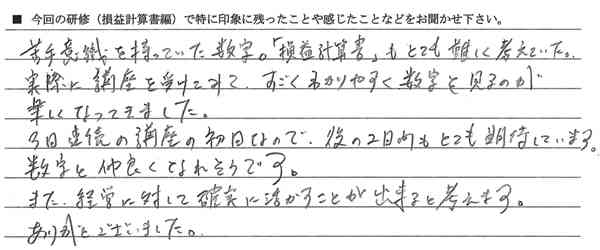 ■ 今回の研修（損益計算書編）で特に印象に残ったことや感じたことなどをお聞かせ下さい。
苦手意識を持っていた数字。「損益計算書」もとても難しく考えていた。
実際に講座を受けてみて、すごくわかりやすく数字を見るのが
楽しくなってきました。
3日連続の講座の初日なので、後の2日間もとても期待しています。
数字と仲良くなれそうです。
また、経営に対して確実に活かすことが出来ると考えます。
ありがとうございました。